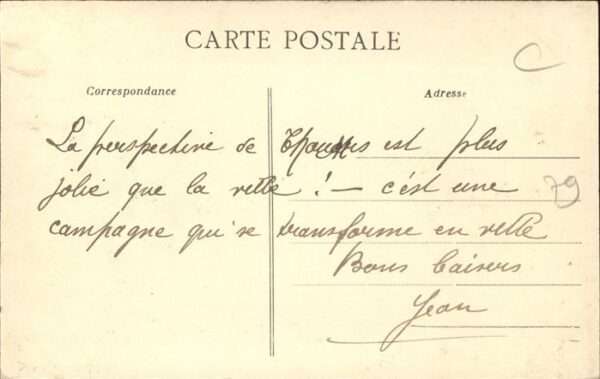 CARTE POSTALE
C
Correspondance
Adresse
La perspective de Thouars est plus
jolie que la ville ! — c'est une
79
campagne qui se transforme en ville
Bons baisers
Jean